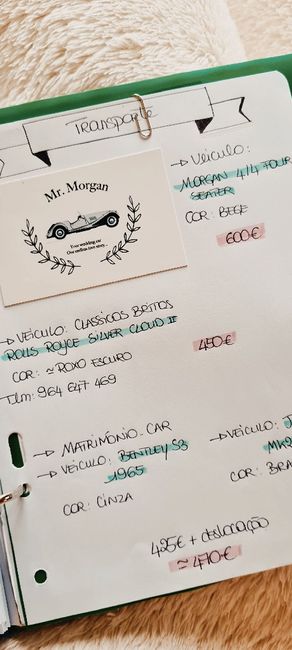 Transporte
→ Veículo:
MORGAN 4/4 FOUR
SEATER
COR: BEGE
600€
Mr. Morgan
Your wedding car
One endless love story
→ VEÍCULO: CLASSICOS BRITOS
ROLLS ROYCE SILVER CLOUD II
COR: ≈ ROXO ESCURO
450€
Tlm: 964 647 469
→ MATRIMÓNIO_CAR
→ VEÍCULO: BENTLEY S3
1965
COR: CINZA
→ VEÍCULO: J
MK2
COR: BRA
425€ + deslocação
≈ 470€